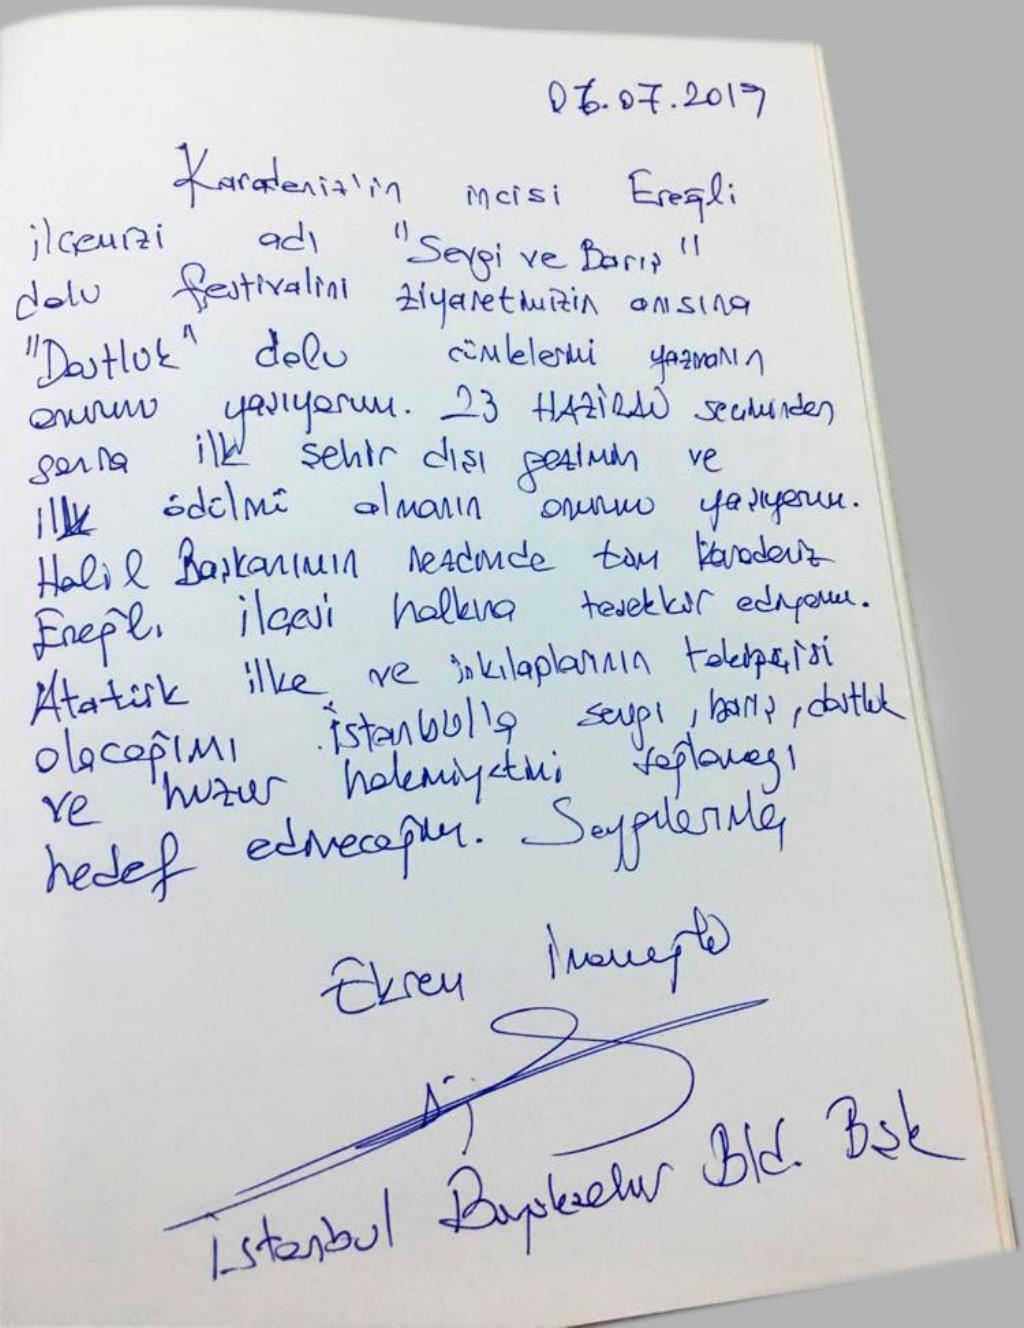 06.07.2019
Karadeniz'in incisi Ereğli
ilçemizi adı "Sevgi ve Barış"
dolu festivalini ziyaretimizin anısına
"Dostluk" dolu cümlelerimi yazmanın
onurunu yaşıyorum. 23 HAZİRAN seçiminden
sonra ilk şehir dışı gezimin ve
ilk ödülmü almanın onurunu yaşıyorum.
Halil Başkanımın nezdinde tüm Karadeniz
Ereğli ilçesi halkına teşekkür ediyorum.
Atatürk ilke ve inkılaplarının takipçisi
olacağımı İstanbul'a sevgi, barış, dostluk
ve huzur hakimiyetini sağlamağı
hedef edineceğim. Saygılarımla
Ekrem İmamoğlu
İstanbul Büyükşehir Bld. Bşk